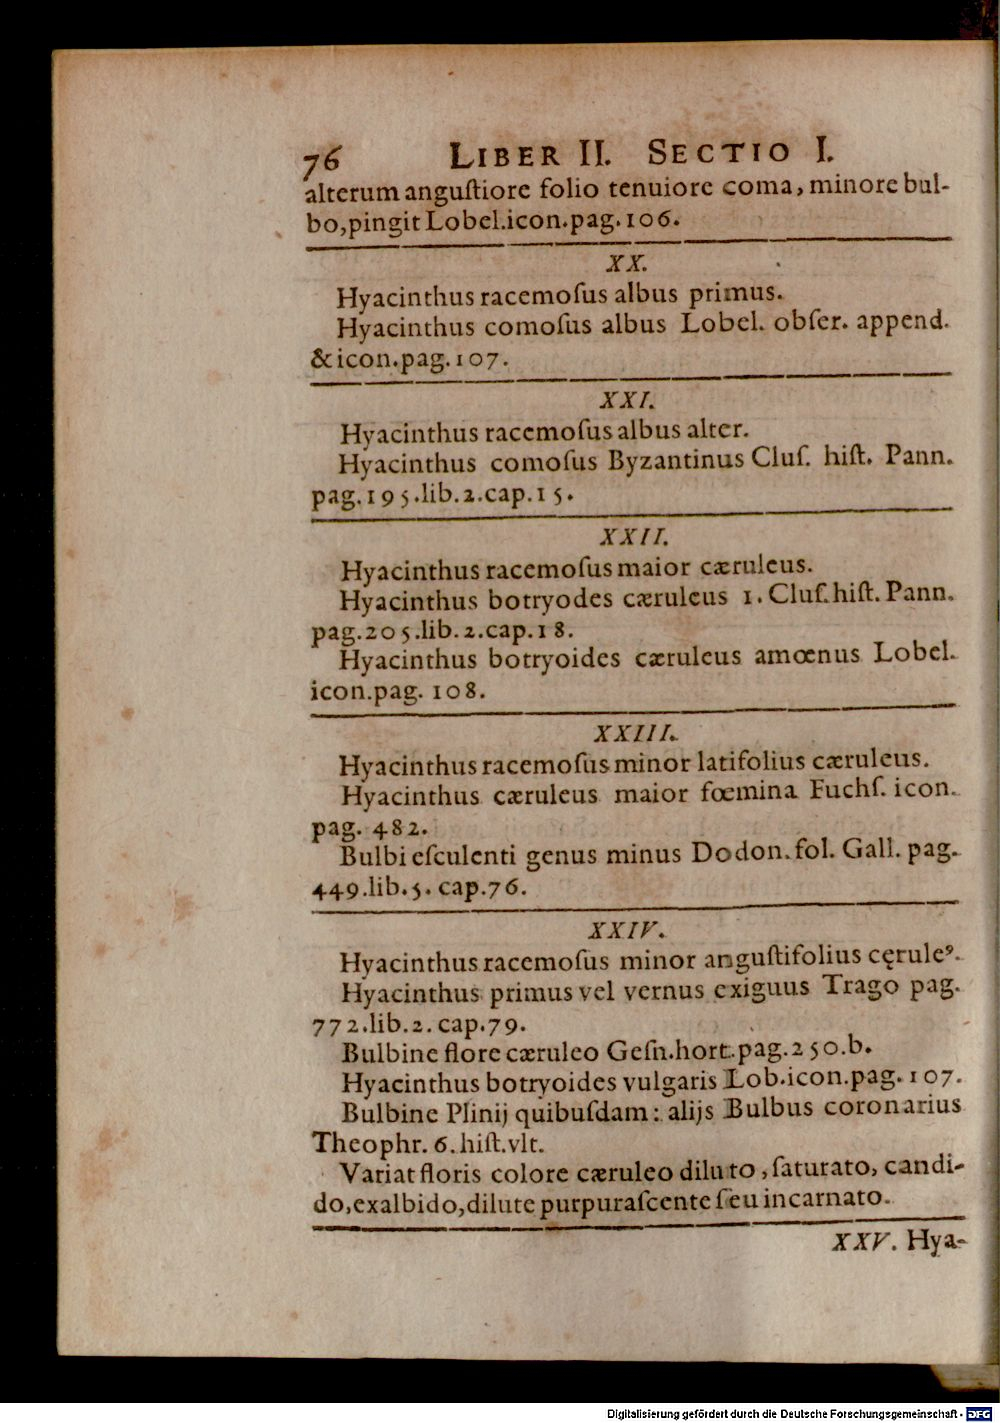 76 LIBER II. SECTIO I.
alterum anguſtiore folio tenuiore coma, minore bul-
bo, pingit Lobel. icon. pag. 106.
XX.
Hyacinthus racemoſus albus primus.
Hyacinthus comoſus albus Lobel. obſer. append.
& icon. pag. 107.
XXI.
Hyacinthus racemoſus albus alter.
Hyacinthus comoſus Byzantinus Cluſ. hiſt. Pann.
pag. 195. lib. 2. cap. 15.
XXII.
Hyacinthus racemoſus maior cæruleus.
Hyacinthus botryodes cæruleus 1. Cluſ. hiſt. Pann.
pag. 205. lib. 2. cap. 18.
Hyacinthus botryoides cæruleus amœnus Lobel.
icon. pag. 108.
XXIII.
Hyacinthus racemoſus minor latifolius cæruleus.
Hyacinthus cæruleus maior fœmina Fuchſ. icon.
pag. 482.
Bulbi eſculenti genus minus Dodon. fol. Gall. pag.
449. lib. 5. cap. 76.
XXIV.
Hyacinthus racemoſus minor anguſtifolius cęruleꝰ.
Hyacinthus primus vel vernus exiguus Trago pag.
772. lib. 2. cap. 79.
Bulbine flore cæruleo Geſn. hort. pag. 250. b.
Hyacinthus botryoides vulgaris Lob. icon. pag. 107.
Bulbine Plinij quibuſdam: alijs Bulbus coronarius
Theophr. 6. hiſt. vlt.
Variat floris colore cæruleo diluto, ſaturato, candi-
do, exalbido, dilute purpuraſcente ſeu incarnato.
XXV. Hya-
Digitalisierung gefördert durch die Deutsche Forschungsgemeinschaft - DFG